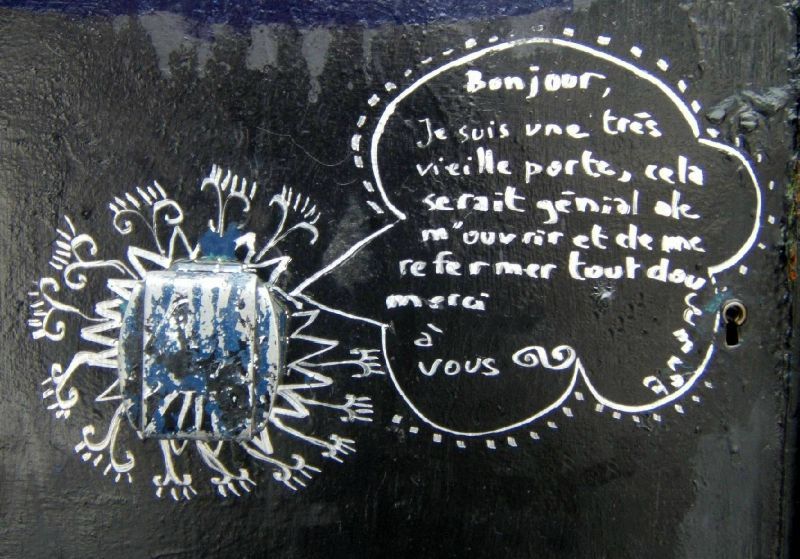 Bonjour,
Je suis une très
vieille porte, cela
serait génial de
m'ouvrir et de me
refermer tout doucement
merci
à
vous